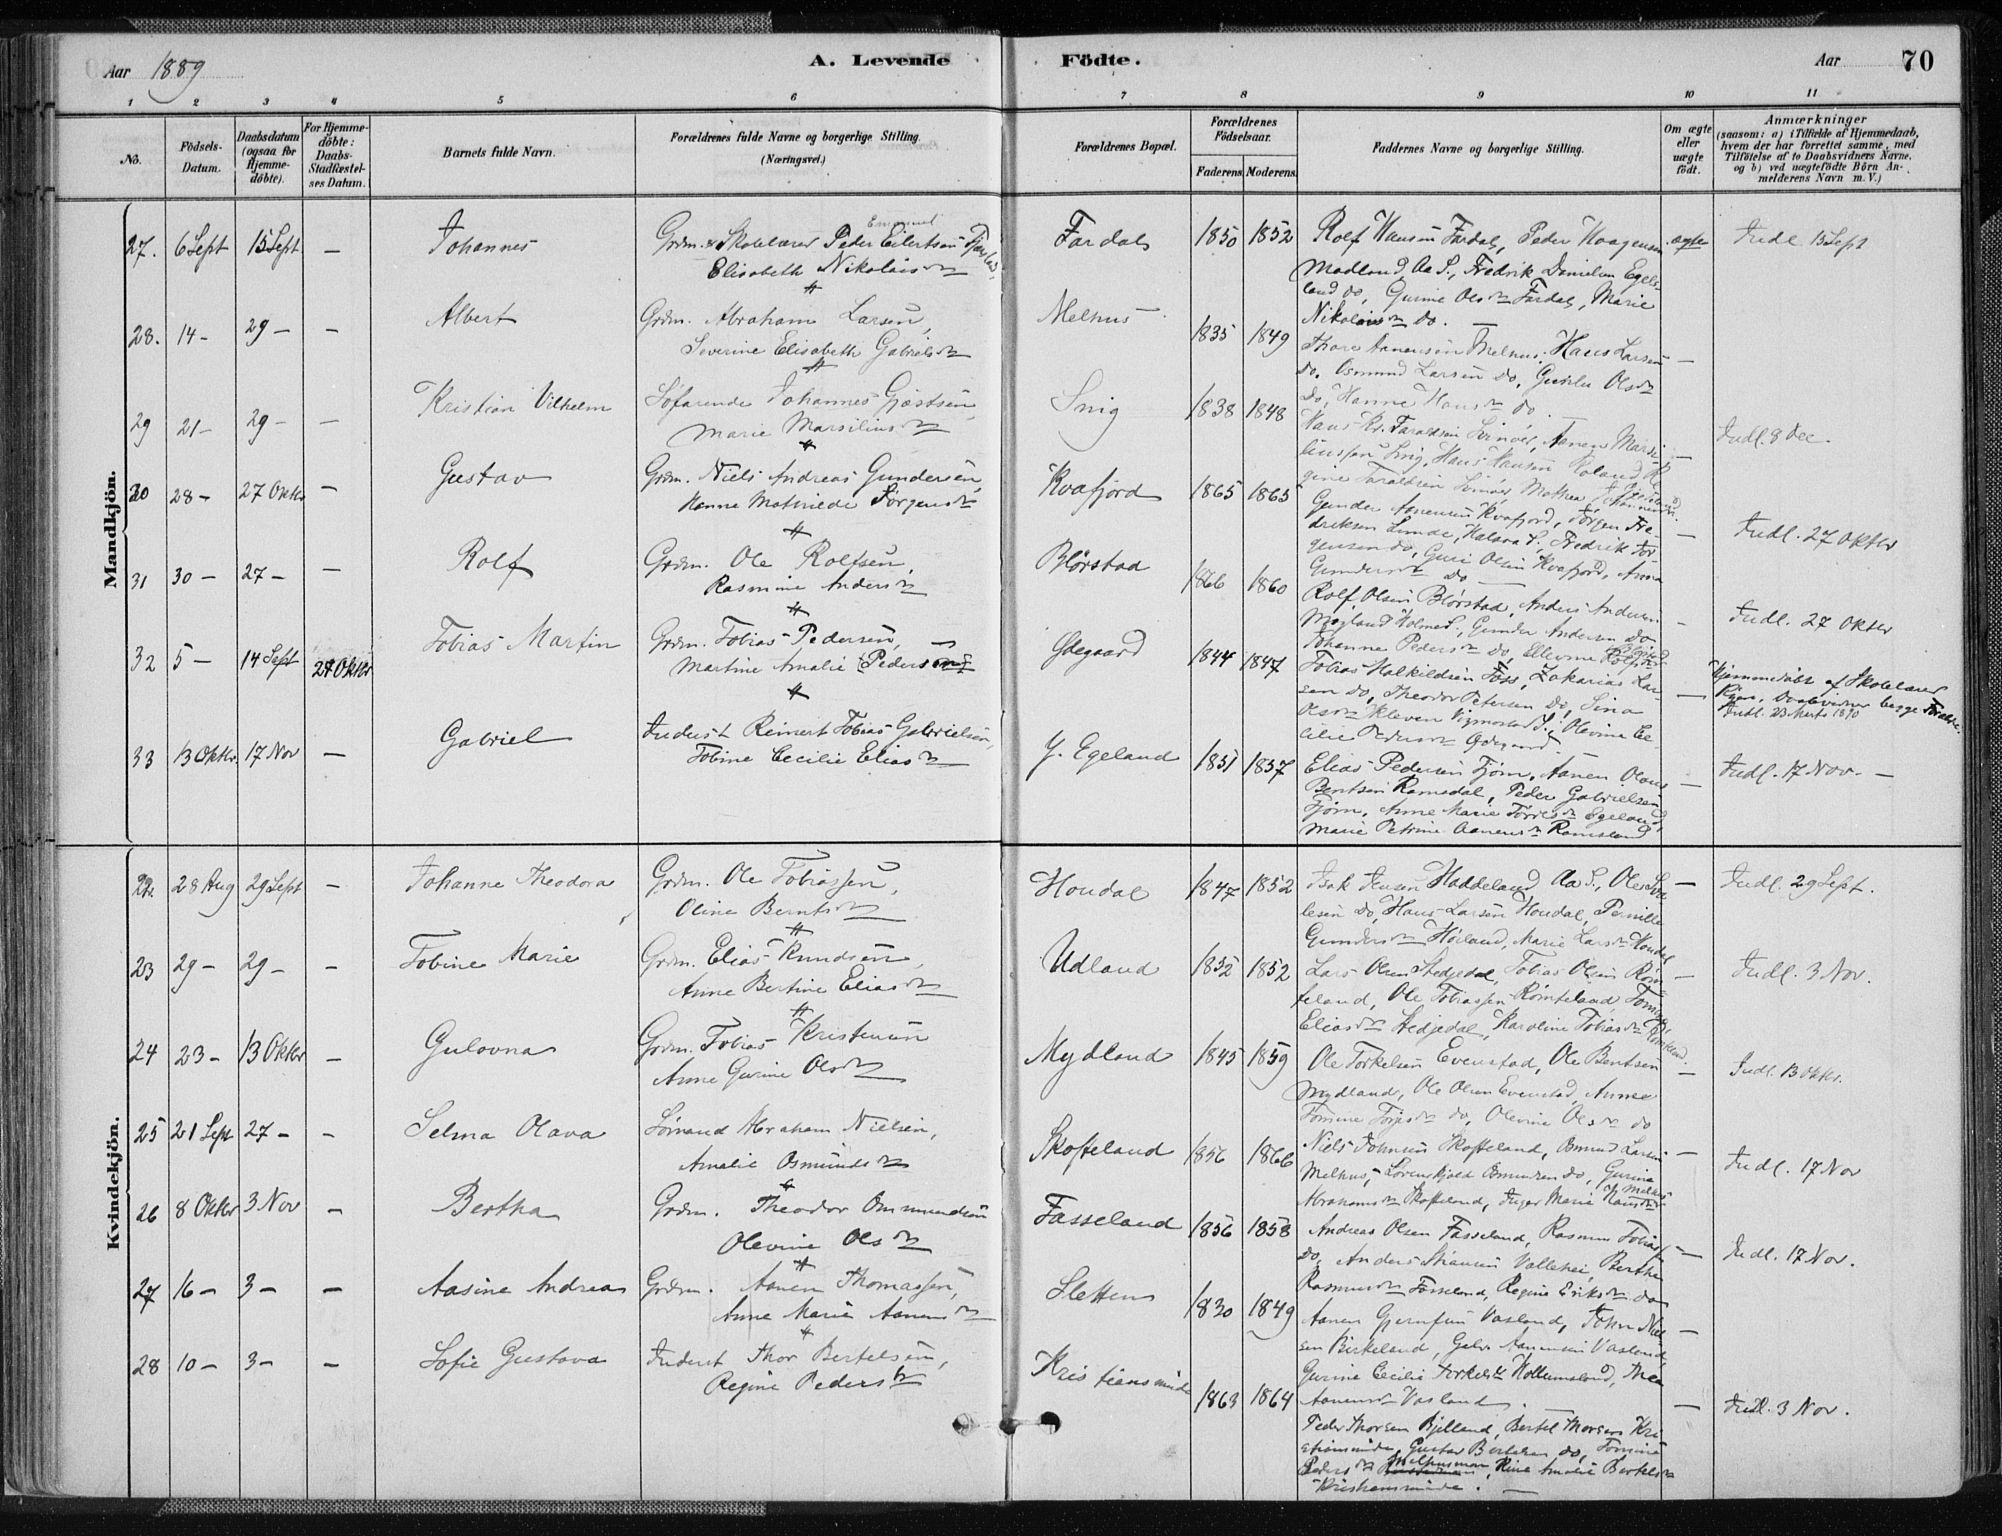 Aar 1889
A. Levende
Födte.
Aar
70
1 2 3 4 5 6 7 8 9 10 11
No.
Födsels-Datum.
Daabsdatum (ogsaa for Hjemme-döbte).
For Hjemme-döbte: Daabs-Stadfæstel-ses Datum.
Barnets fulde Navn.
Forældrenes fulde Navne og borgerlige Stilling. (Næringsvei.)
Forældrenes Bopæl.
Forældrenes Födselsaar.
Faderens. Moderens.
Faddernes Navne og borgerlige Stilling.
Om ægte eller uægte födt.
Anmærkninger
(saasom: a) i Tilfælde af Hjemmedaab,
hvem der har forrettet samme, med
Tilföielse af to Daabsvidners Navne,
og b) ved uægtefödte Börn An-
melderens Navn m. V.)
Mandkjön.
27. 6 Sept 15 Sept — Johannes
Grdm. & Skolelærer Peder Emanuel Eilertsen
Elisabeth Nikolaisdtr
Fardal 1850 1852
Rolf Hansen Fardal, Peder Haagensen
Madland, Aa S., Fredrik Danielsen Egels-
land do, Gurine Olsdtr Fardal, Marie
Nikolaisdtr do. —
ægte
Indl 15 Sept
28. 14 — 29 — — Albert
Grdm. Abraham Larsen,
Severine Elisabeth Gabrielsdtr
Melhus 1835 1849
Thore Aanensen Melhus, Hans Larsen
do, Osmund Larsen do, Gunhild Olsdtr
do, Hanne Hansdtr do. —
29 21 — 29 — — Kristian Vilhelm
Söfarende Johannes Gjertsen,
Marie Marsiliusdtr
Snig 1838 1848
Hans Kr. Taraldsen Svinör, Aanen Marsi-
liussen Snig, Hans Hansen
gine Taraldsen Svinör, Mathea
Indl. 8 Dec.
30 28 — 27 Oktbr — Gustav
Grdm. Niels Andreas Gundersen,
Hanne Mathilde Jörgensdtr
Kvafjord 1865 1865
Gunder Aanensen Kvafjord, Jörgen Fre-
driksen Lunde, Halsaa S., Fredrik Jör
gensen do, Guri Olsen Kvafjord, Anna
Gundersdtr do —
Indl. 27 Oktbr
31 30 — 27 — — Rolf
Grdm. Ole Rolfsen,
Rasmine Andersdtr
Blörstad 1866 1860
Rolf Olsen Blörstad, Anders Andersen
Mögland Holme S., Gunder Andersen do
Johanne Pedersdtr do, Ellevine Rolfsdtr
Indl. 27 Oktbr
32 5 — 14 Sept 27 Oktbr Tobias Martin
Grdm. Tobias Pedersen,
Martine Amalie Pedersen
Ödegaard 1844 1847
Tobias Halkildsen Foss, Zakarias Lar-
sen do, Theodor Petersen do, Sina
Olsdtr Kleven Vigmostad S., Olevine Ce-
cilie Pedersdtr Ödegaard
Hjemmedöbt af Skolelærer
Daabsvidner begge Forældre.
Indl. 23 Marts 1890
33 13 Oktbr. 17 Nov — Gabriel
Inderst Reinert Tobias Gabrielsen,
Tobine Cecilie Eliasdtr
Y. Egeland 1851 1857
Elias Pedersen Tjöm, Aanen Olaus
Bentsen Ramsdal, Peder Gabrielsen
Tjöm, Anne Marie Törresdtr Egeland,
Marie Petrine Aanensdtr Ramsland
Indl. 17 Nov. —
Kvindekjön.
22. 28 Aug 29 Sept — Johanne Theodora
Grdm. Ole Tobiassen,
Oline Berntsdtr
Houdal 1847 1852
Isak Jensen Haddeland Aa S., Ole
lesen do, Hans Larsen Houdal, Pernille
Gundersdtr Höiland, Marie Larsdtr Houdal
Indl. 29 Sept.
23 29 — 29 — — Tobine Marie
Grdm. Elias Knudsen,
Anne Bertine Eliasdtr
Udland 1852 1852
Lars Olsen Stedjedal, Tobias Olsen Röm-
feland, Ole Tobiassen Römfeland,
Eliasdtr Stedjedal, Karoline Tobiasdtr
Indl. 3 Nov.
24 23 — 13 Oktbr — Gulovna
Grdm. Tobias Kristensen
Anne Gurine Olsdtr
Mydland 1845 1859
Ole Torkelsen Evenstad, Ole Bentsen
Mydland, Ole Olsen Evenstad, Anne
do, Olevine Olsdtr do
Indl. 13 Oktbr.
25 21 Sept 27 — — Selma Olava
Sömand Abraham Nielsen,
Amalie Osmundsdtr
Skofteland 1856 1866
Niels Johnsen Skofteland, Osmund Larsen
Melhus, Osmundsen do, Gurine
Abrahamsdtr Skofteland, Inger Marie Hansdtr Melhus
Indl. 17 Nov
26 8 Oktbr 3 Nov — Bertha
Grdm. Theodor Ommundsen
Olevine Olsdtr
Fasseland 1856 1858
Andreas Olsen Fasseland, Rasmus Tobias
do, Anders Vallehei, Berthe
Rasmusdtr Fasseland, Regine Eriksdtr do
Indl. 17 Nov.
27 16 — 3 — — Aasine Andrea
Grdm. Aanen Thomassen,
Anne Marie Aanensdtr
Sletten 1830 1849
Aanen Vasland, John Niel
sen Birkeland, Aanensen Vasland,
Gurine Cecilie Torkelsdtr Hollumsland, Thea
Aanensdtr Vasland. —
28 10 — 3 — — Sofie Gustava
Inderst Thor Bertelsen,
Regine Pedersdtr
Kristiansminde 1863 1864
Peder Thorsen Bjelland, Bertel Thorsen Kri
stiansminde, Gustav Bertelsen do, Tomine
Pedersdtr, Amalie Bertelsdtr
Kristiansminde. —
Indl. 3 Nov.